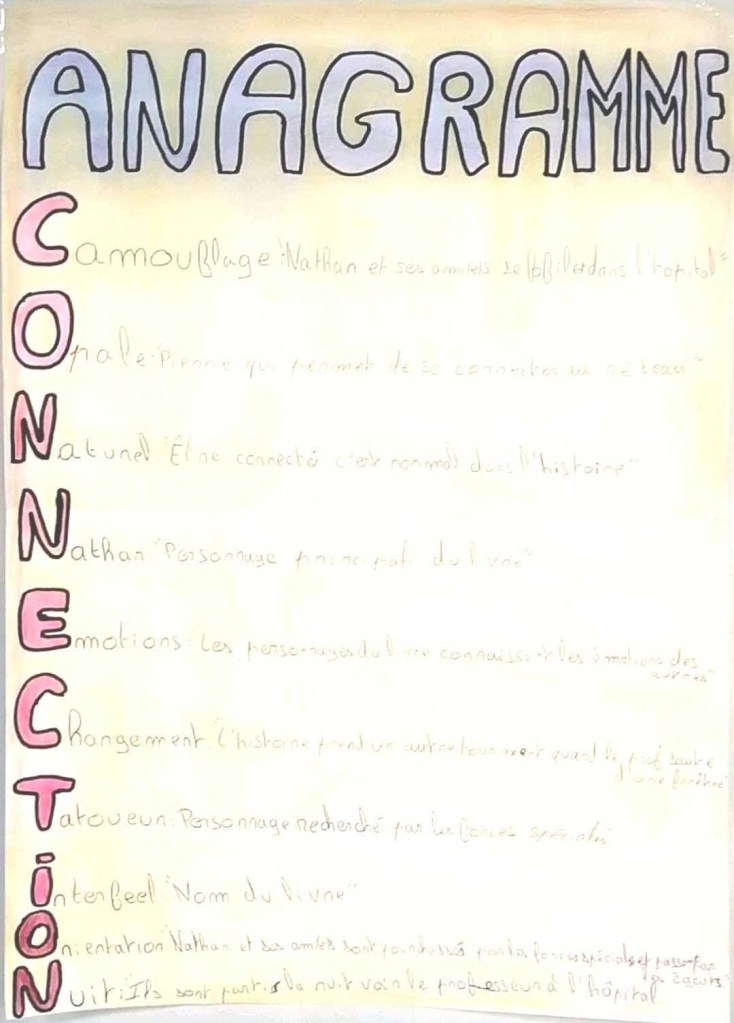 ANAGRAMME
Camouflage: "Nathan et ses ami(e)s se faufilent dans l'hopital"
Opale: "Pierre qui permet de se connecter au réseau"
Naturel: "Être connecté c'est normal dans l'histoire"
Nathan: "Personnage principal du livre"
Emotions: "Les personnages du livre connaissent les émotions des
autres"
Changement: "L'histoire prend un autre tournment quand le prof saute
d'une fenêtre"
Tatoueur: Personnage recherché par les forces spéciales
interfeel "Nom du livre"
Orientation "Nathan et ses ami(e)s sont pourchassés par les forces spéciales et passe par
les égouts"
Nuit: "Ils sont partis la nuit voir le professeur à l'hôpital